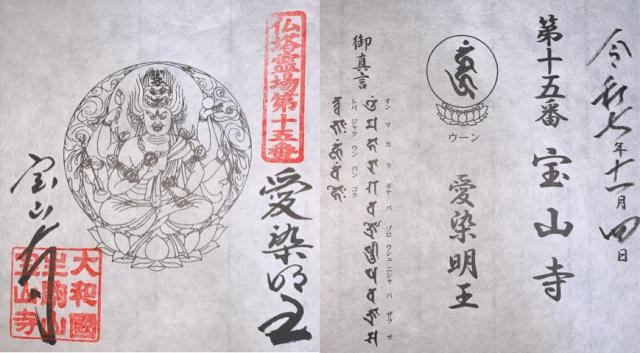 仏塔霊場第十五番
愛染明王
宝山寺
大和國
生駒山
宝山寺
令和七年十一月四日
第十五番 宝山寺
ウーン
愛染明王
御真言
オン マ カ ラ ギャ バ ゾロ ウシュニシャ バ ザラ サ
トバ ジャク ウン バン コク